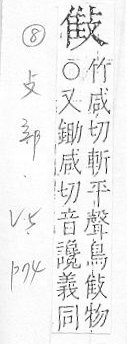 竹咸切斬平聲鳥物
○又鋤咸切音讒義同
⑧ 攴部. V5 p74